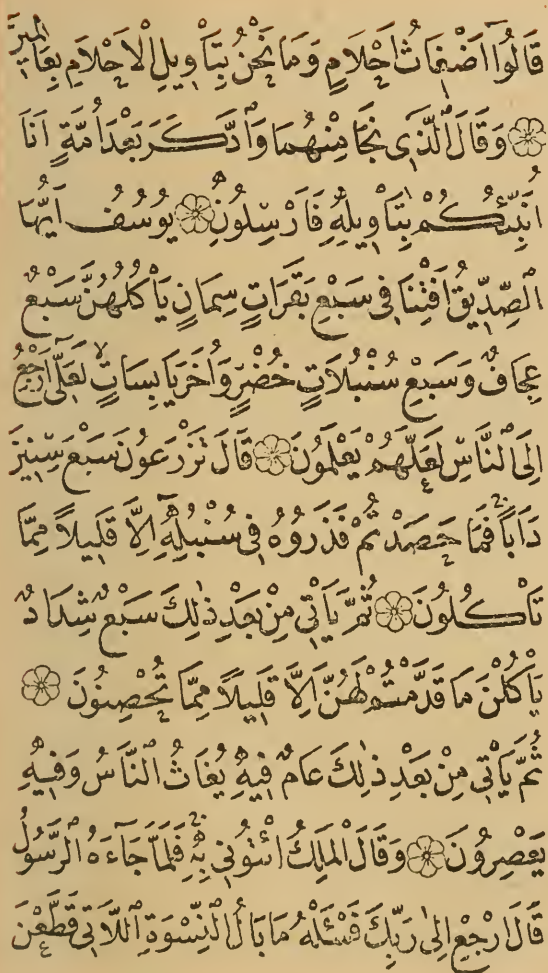 قَالُوٓا اَضْغَاثُ اَحْلَامٍ وَمَا نَحْنُ بِتَاْوِيلِ الْاَحْلَامِ بِعَالِمِينَ
۝ وَقَالَ الَّذِى نَجَا مِنْهُمَا وَادَّكَرَ بَعْدَ اُمَّةٍ اَنَا
اُنَبِّئُكُمْ بِتَاْوِيلِهِ فَاَرْسِلُونِ ۝ يُوسُفُ اَيُّهَا
الصِّدِّيقُ اَفْتِنَا فِى سَبْعِ بَقَرَاتٍ سِمَانٍ يَاْكُلُهُنَّ سَبْعٌ
عِجَافٌ وَسَبْعِ سُنْبُلَاتٍ خُضْرٍ وَاُخَرَ يَابِسَاتٍ لَعَلِّى اَرْجِعُ
اِلَى النَّاسِ لَعَلَّهُمْ يَعْلَمُونَ ۝ قَالَ تَزْرَعُونَ سَبْعَ سِنِينَ
دَاَبًا فَمَا حَصَدْتُمْ فَذَرُوهُ فِى سُنْبُلِهِٓ اِلَّا قَلِيلًا مِمَّا
تَاْكُلُونَ ۝ ثُمَّ يَاْتِى مِنْ بَعْدِ ذٰلِكَ سَبْعٌ شِدَادٌ
يَاْكُلْنَ مَا قَدَّمْتُمْ لَهُنَّ اِلَّا قَلِيلًا مِمَّا تُحْصِنُونَ ۝
ثُمَّ يَاْتِى مِنْ بَعْدِ ذٰلِكَ عَامٌ فِيهِ يُغَاثُ النَّاسُ وَفِيهِ
يَعْصِرُونَ ۝ وَقَالَ الْمَلِكُ ائْتُونِى بِهِ فَلَمَّا جَآءَهُ الرَّسُولُ
قَالَ ارْجِعْ اِلٰى رَبِّكَ فَسْئَلْهُ مَا بَالُ النِّسْوَةِ اللَّاتِى قَطَّعْنَ